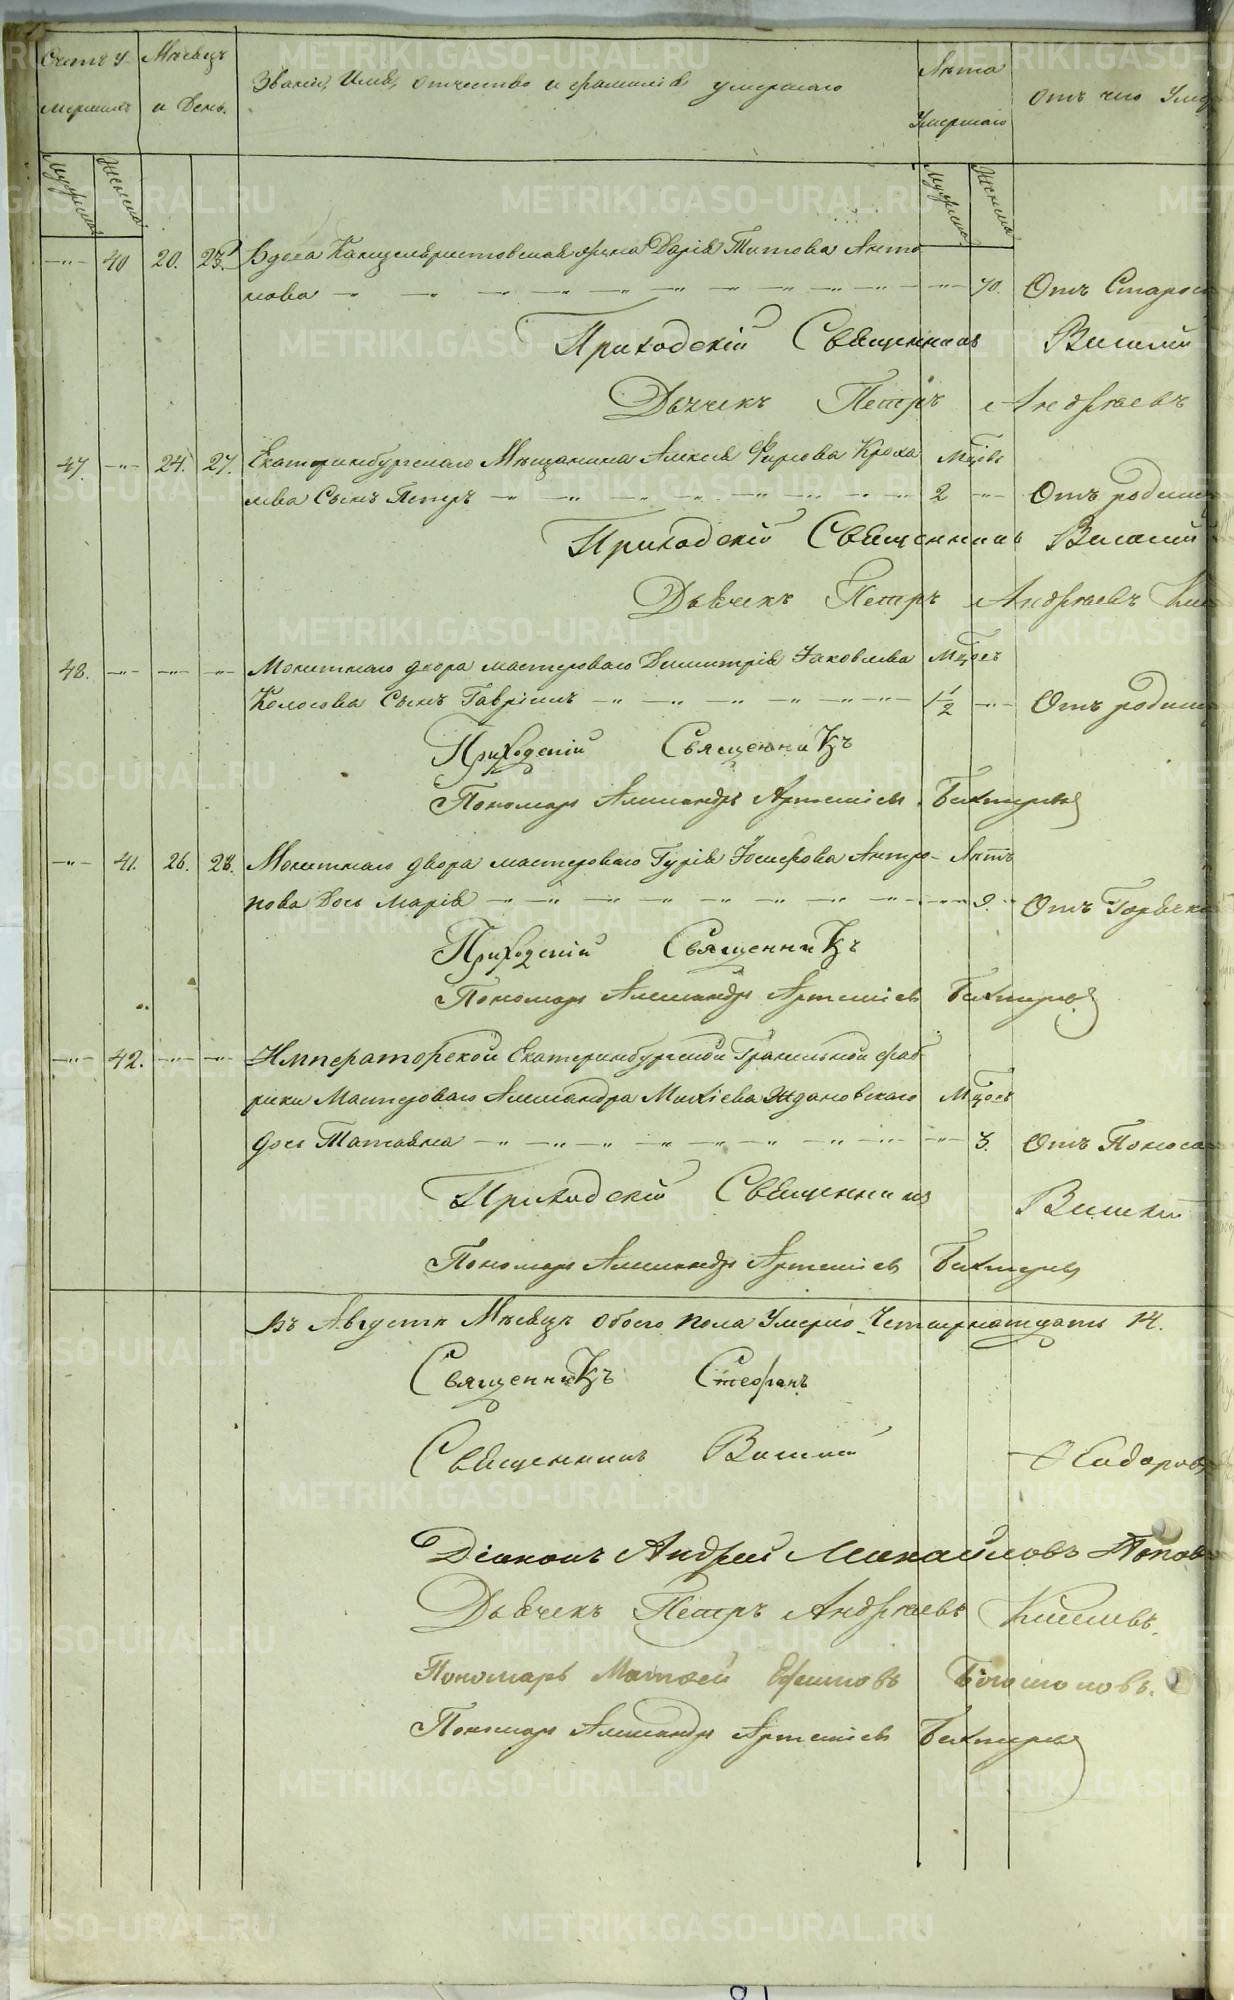 Счетъ у- Мѣсяцъ Званіе, Имя, отчество и фамилія умершаго Лѣта Отъ чего Уме
мершихъ и День. Умершаго
Мужеска Женска Мужеска Женска
—"— 40 20. 23. Вдова Канцеляристовская жена Дарія Титова Анто
нова —"— 70. Отъ Старос
Приходскій Священникъ Василій
Дьячекъ Петръ Андрѣевъ
47. —"— 24. 27. Екатеринбургскаго Мѣщанина Алексѣя Фирсова Крока Мцовъ
лева Сынъ Петръ —"— 2 —"— Отъ родим
Приходскій Священникъ Василій
Дьячекъ Петръ Андрѣевъ Ки
48. —"— —"— —"— Монетнаго двора мастероваго Димитрія Іаковлева Мцовъ
Колосова Сынъ Гавріилъ —"— 1 1/2 —"— Отъ родим
Приходскій Священникъ
Пономарь Александръ Артеміевъ
—"— 41. 26. 28. Монетнаго двора мастероваго Гурія Іосифова Антро- Лѣтъ
пова Дочь Марія —"— 9. Отъ Горячк
Приходскій Священникъ
Пономарь Александръ Артеміевъ
—"— 42. —"— —"— Императорской Екатеринбургской Гранильной фаб-
рики Мастероваго Александра Михіева Ждановскаго Мцовъ
дочь Татіана —"— 3. Отъ Поноса
Приходскій Священникъ Василій
Пономарь Александръ Артеміевъ
Въ Августѣ Мѣсяцѣ обоего пола Умерло Четырнатцать 14.
Священникъ Стефанъ
Священникъ Василій
Діаконъ Андрей Михайловъ Попов
Дьячекъ Петръ Андрѣевъ
Пономарь Матвей Ефимовъ
Пономарь Александръ Артеміевъ
METRIKI.GASO-URAL.RU